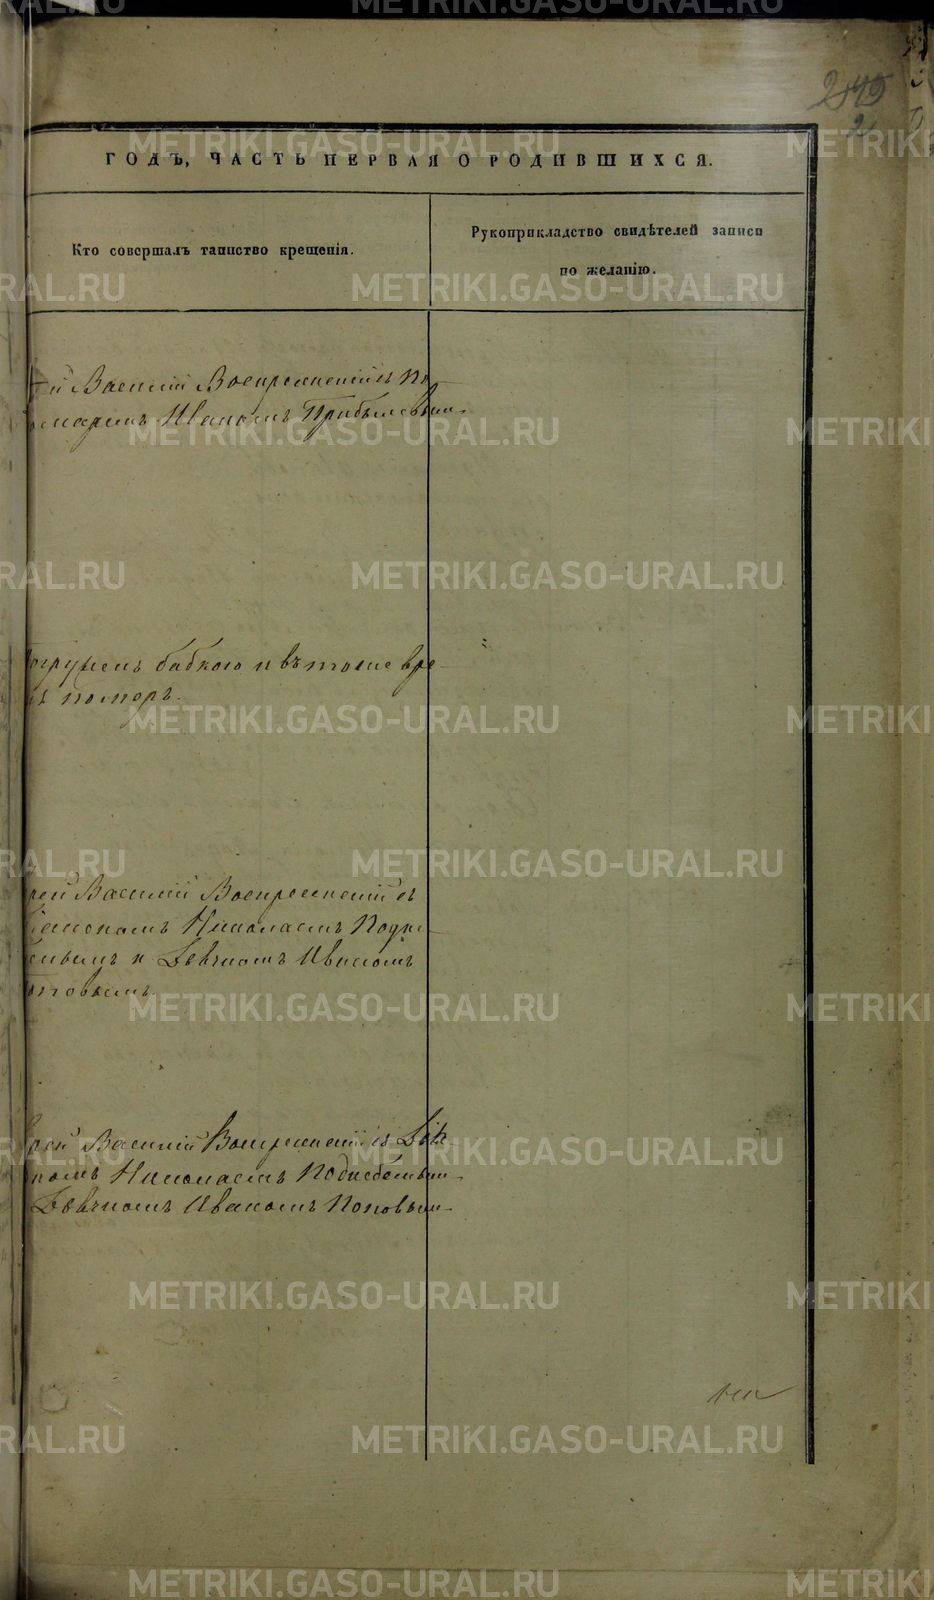 2
ГОДЪ, ЧАСТЬ ПЕРВАЯ О РОДИВШИХСЯ.
Кто совершалъ таинство крещенія.
Рукоприкладство свидѣтелей записи
по желанію.
ей Василій Воскресенскій съ По
номаремъ Иваномъ Прибылевым-
огруженъ бабкою и въ тоже вре-
померъ.
рей Василій Воскресенскій съ
Николаемъ
и Дьячкомъ Иваномъ
повымъ.
рей Василій Воскресенскій съ Діа-
кономъ Николаемъ Подбѣльским-
Дьячкомъ Иваномъ Поповым-
METRIKI.GASO-URAL.RU